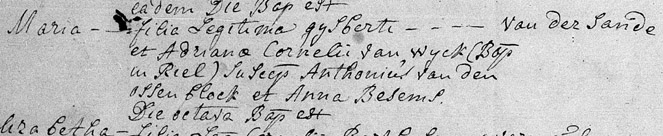 eadem Die Bap est
Maria - filia Legitima gysberti - - - - van der Sande
et Adrianæ Cornelii van wyck (Bap
in Riel) Suscep Anthonius van den
ossenblock et Anna Besems.
Die octava Bap est